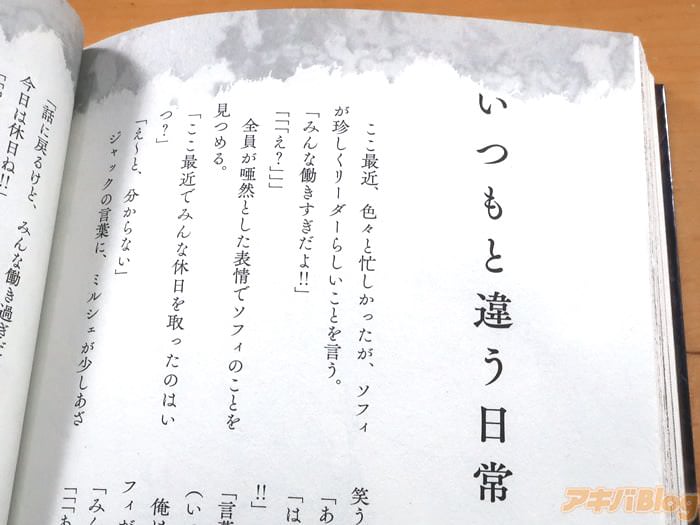 いつもと違う日常
ここ最近、色々と忙しかったが、ソフィ
が珍しくリーダーらしいことを言う。
「みんな働きすぎだよ!!」
「「「え?」」」
全員が唖然とした表情でソフィのことを
見つめる。
「ここ最近でみんな休日を取ったのはい
つ?」
「え〜と、分からない」
ジャックの言葉に、ミルシェが少しあざ
笑う
「あ
「は
!!
「言葉
(い
俺は
フィが
「みん
「「あ
「話に戻るけど、みんな働き過ぎだ
今日は休日ね!!」
アキバBlog